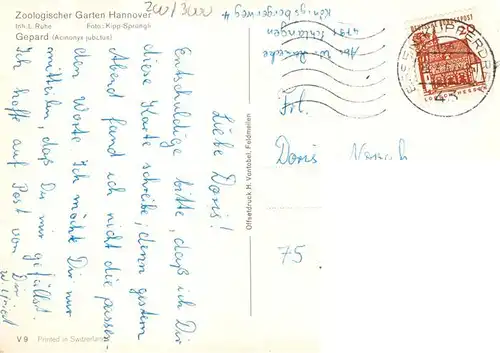 Zoologischer Garten Hannover
Inh. L. Ruhe Foto: Kipp-Sprüngli
Gepard (Acinonyx jubatus)
200/3000
Liebe Doris!
Entschuldige bitte, daß ich Dir
diese Karte schreibe, denn gestern
Abend fand ich nicht die passen-
den Worte. Ich möchte Dir nur
mitteilen, daß Du mir gefällst.
Ich hoffe auf Post von Dir
Offsetdruck H. Vontobel, Feldmeilen
DEUTSCHE BUNDESPOST
Frl.
Doris
75
Königsbergerweg 4
V 9 Printed in Switzerland